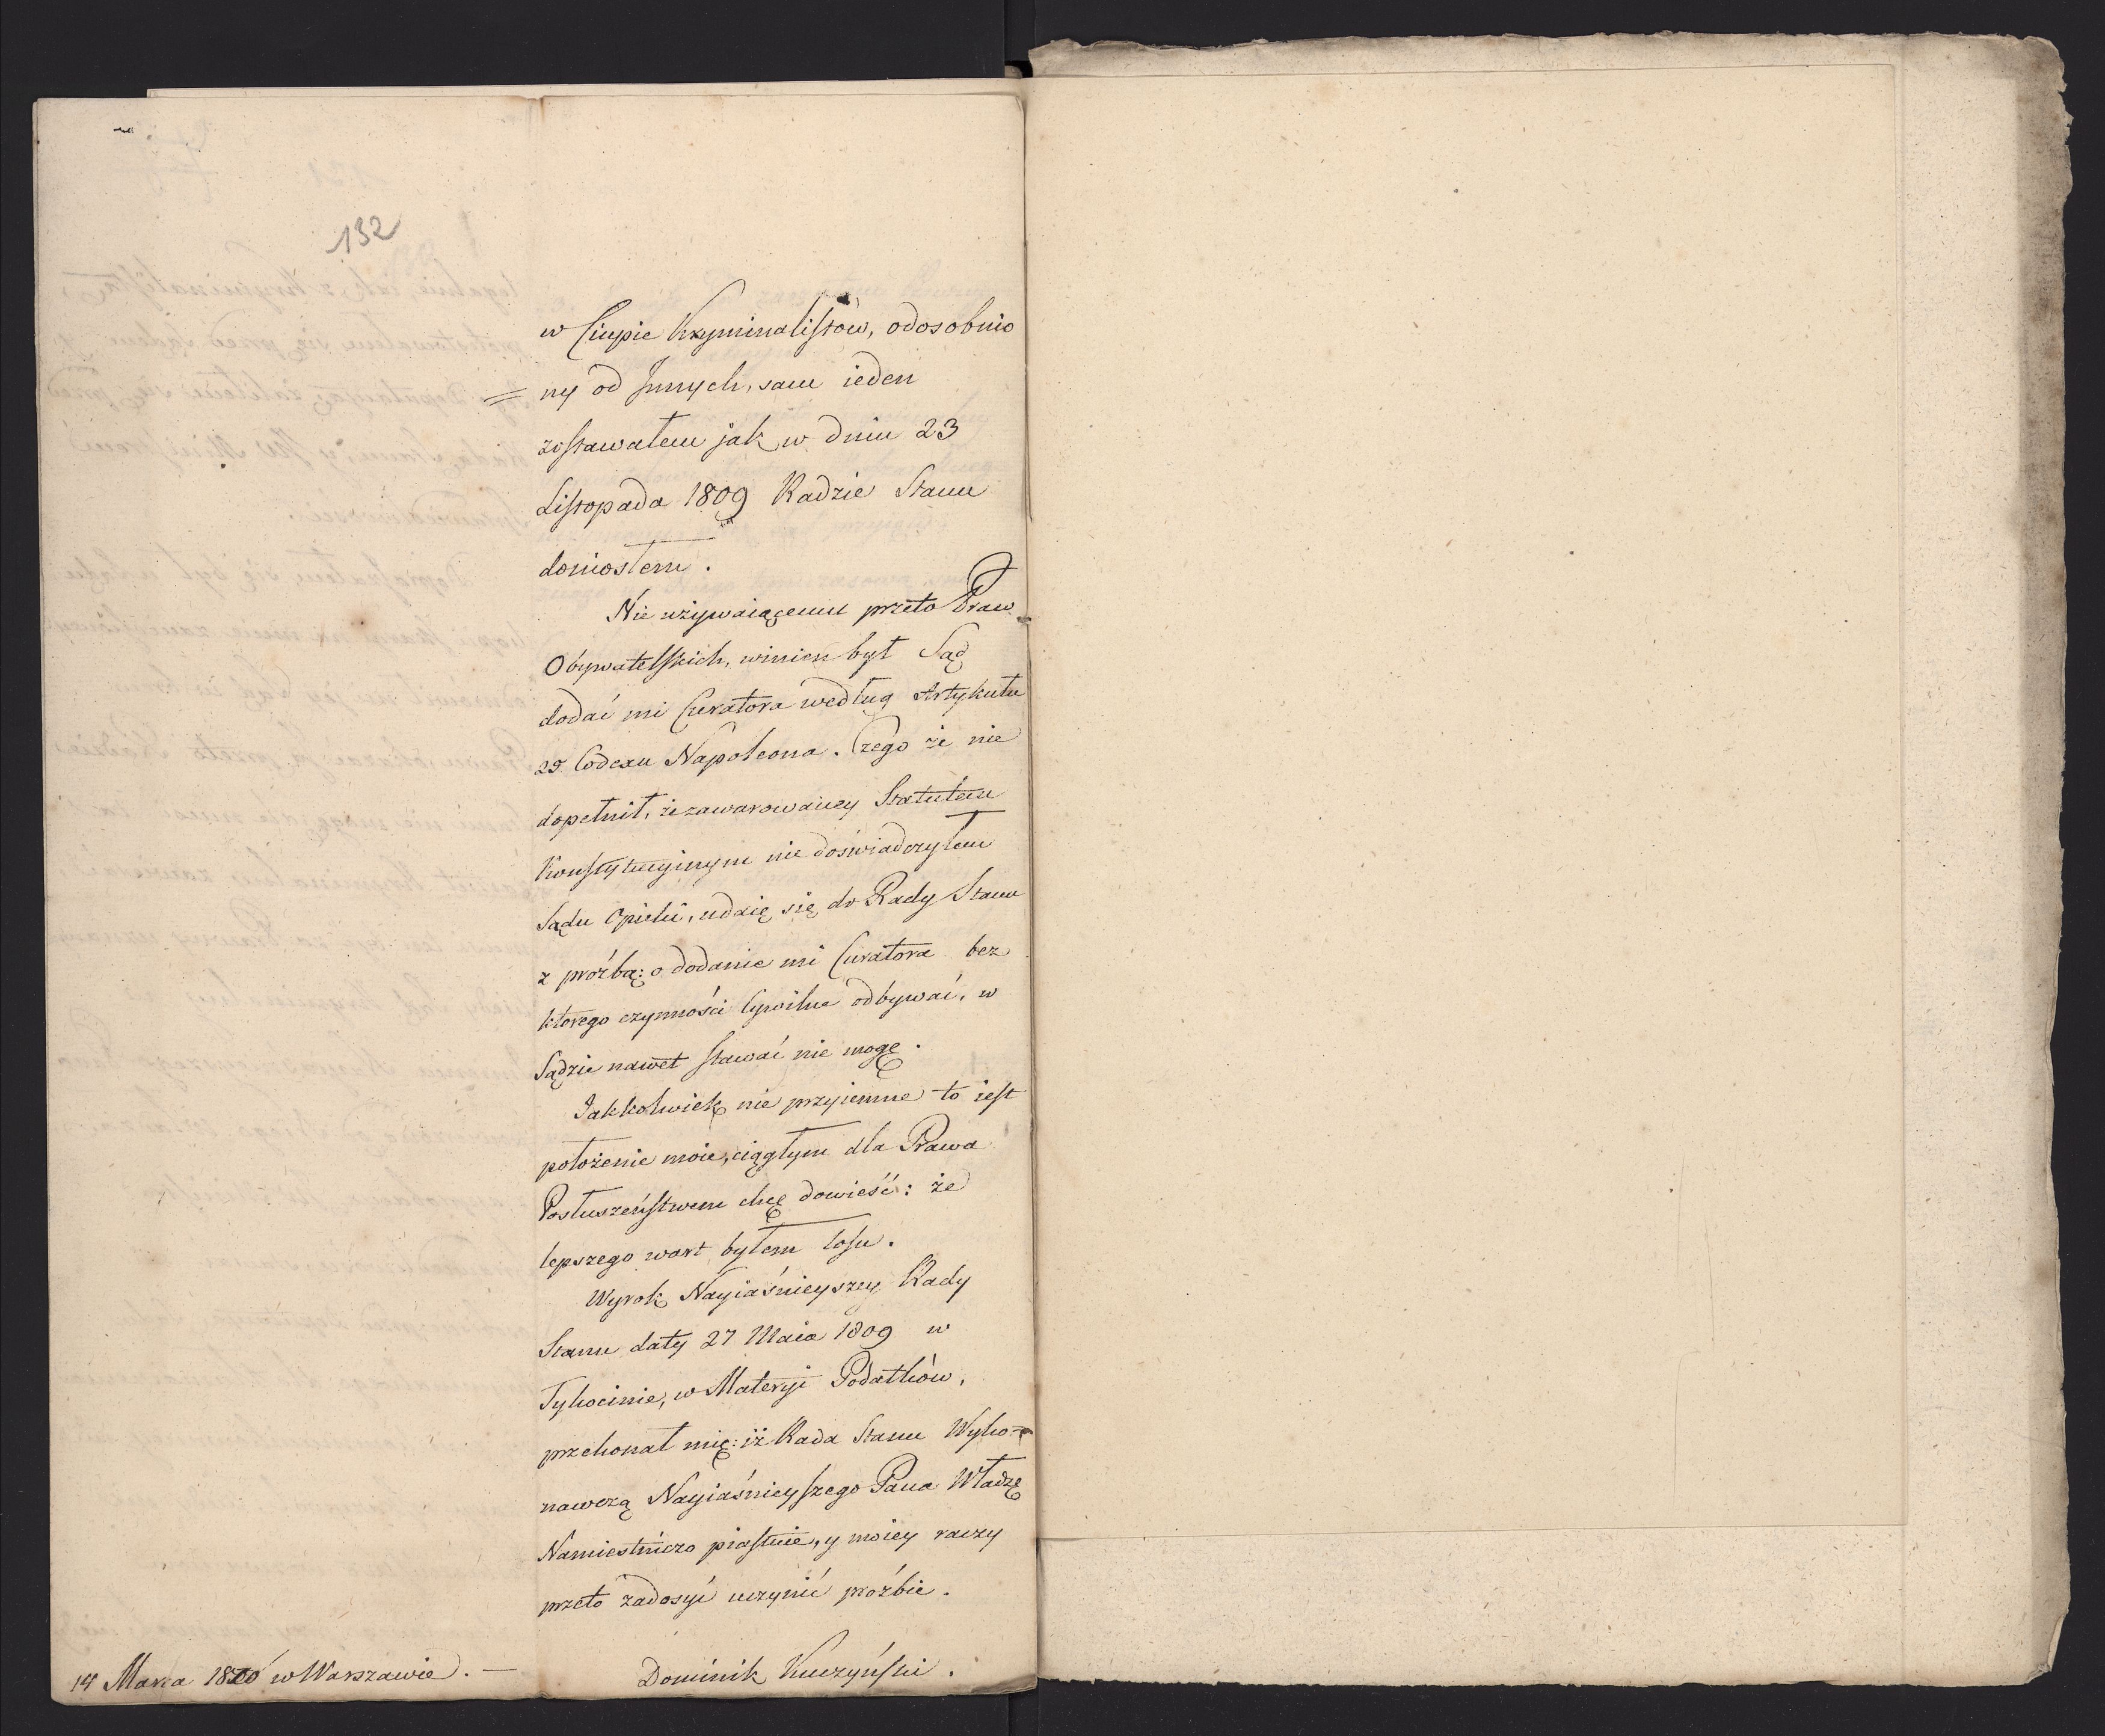 132
w Ciupie Kryminalistów, odosobnio
= ny od Innych, sam ieden
zostawałem jak w dniu 23
Listopada 1809 Radzie Stanu
doniosłem.
Nie używaiącemu przeto Praw
Obywatelskich, winien był Sąd
dodać mi Curatora według Artykułu
29. Codexu Napoleona. Czego że nie
dopełnił, że zawarowaney Statutem
Konstytucyinym nie doświadczyłem
Sądu Opieki, udaię się do Rady Stanu
z proźbą: o dodanie mi Curatora bez
którego czynności Cywilne odbywać, w
Sądzie nawet stawać nie mogę.
Jakkolwiek nie przyiemne to iest
położenie moie, ciągłym dla Prawa
Posłuszeństwem chcę dowieść: że
lepszego wart byłem losu.
Wyrok Nayiaśnieyszey Rady
Stanu daty 27 Maia 1809 w
Tykocinie, w Materyi Podatków,
przekonał mię: iż Rada Stanu Wyko=
nawczą Nayiaśnieyszego Pana Władzę
Namiestniczo piastuie, y moiey raczy
przeto zadosyć uczynić proźbie.
14 Marca 1810 w Warszawie. —
Dominik Kuczyński.